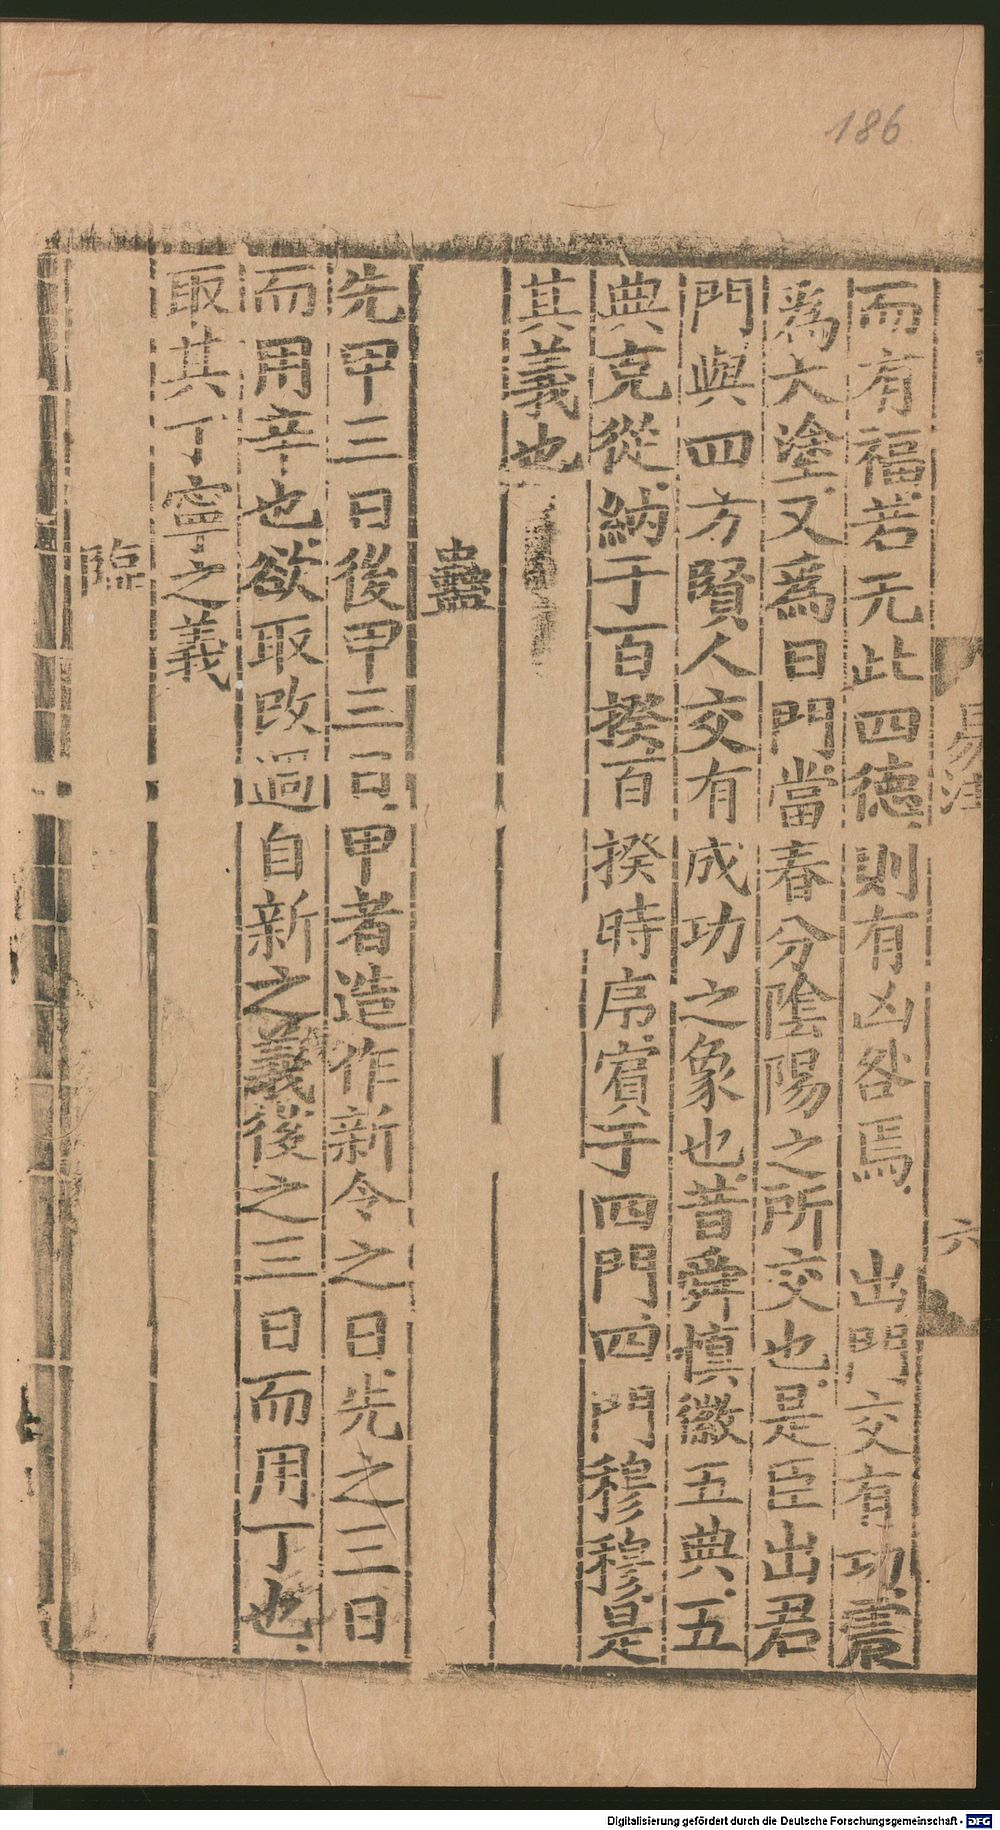 186
而有福若无此四德則有凶咎焉 出門交有功震
爲大塗又爲日門當春分陰陽之所交也是臣出君
門與四方賢人交有成功之象也昔舜慎徽五典五
典克從納于百揆百揆時序賓于四門四門穆穆是
其義也
蠱
先甲三日後甲三日甲者造作新令之日先之三日
而用辛也欲取改過自新之義後之三日而用丁也
取其丁寧之義
臨
易注
六
Digitalisierung gefördert durch die Deutsche Forschungsgemeinschaft - DFG